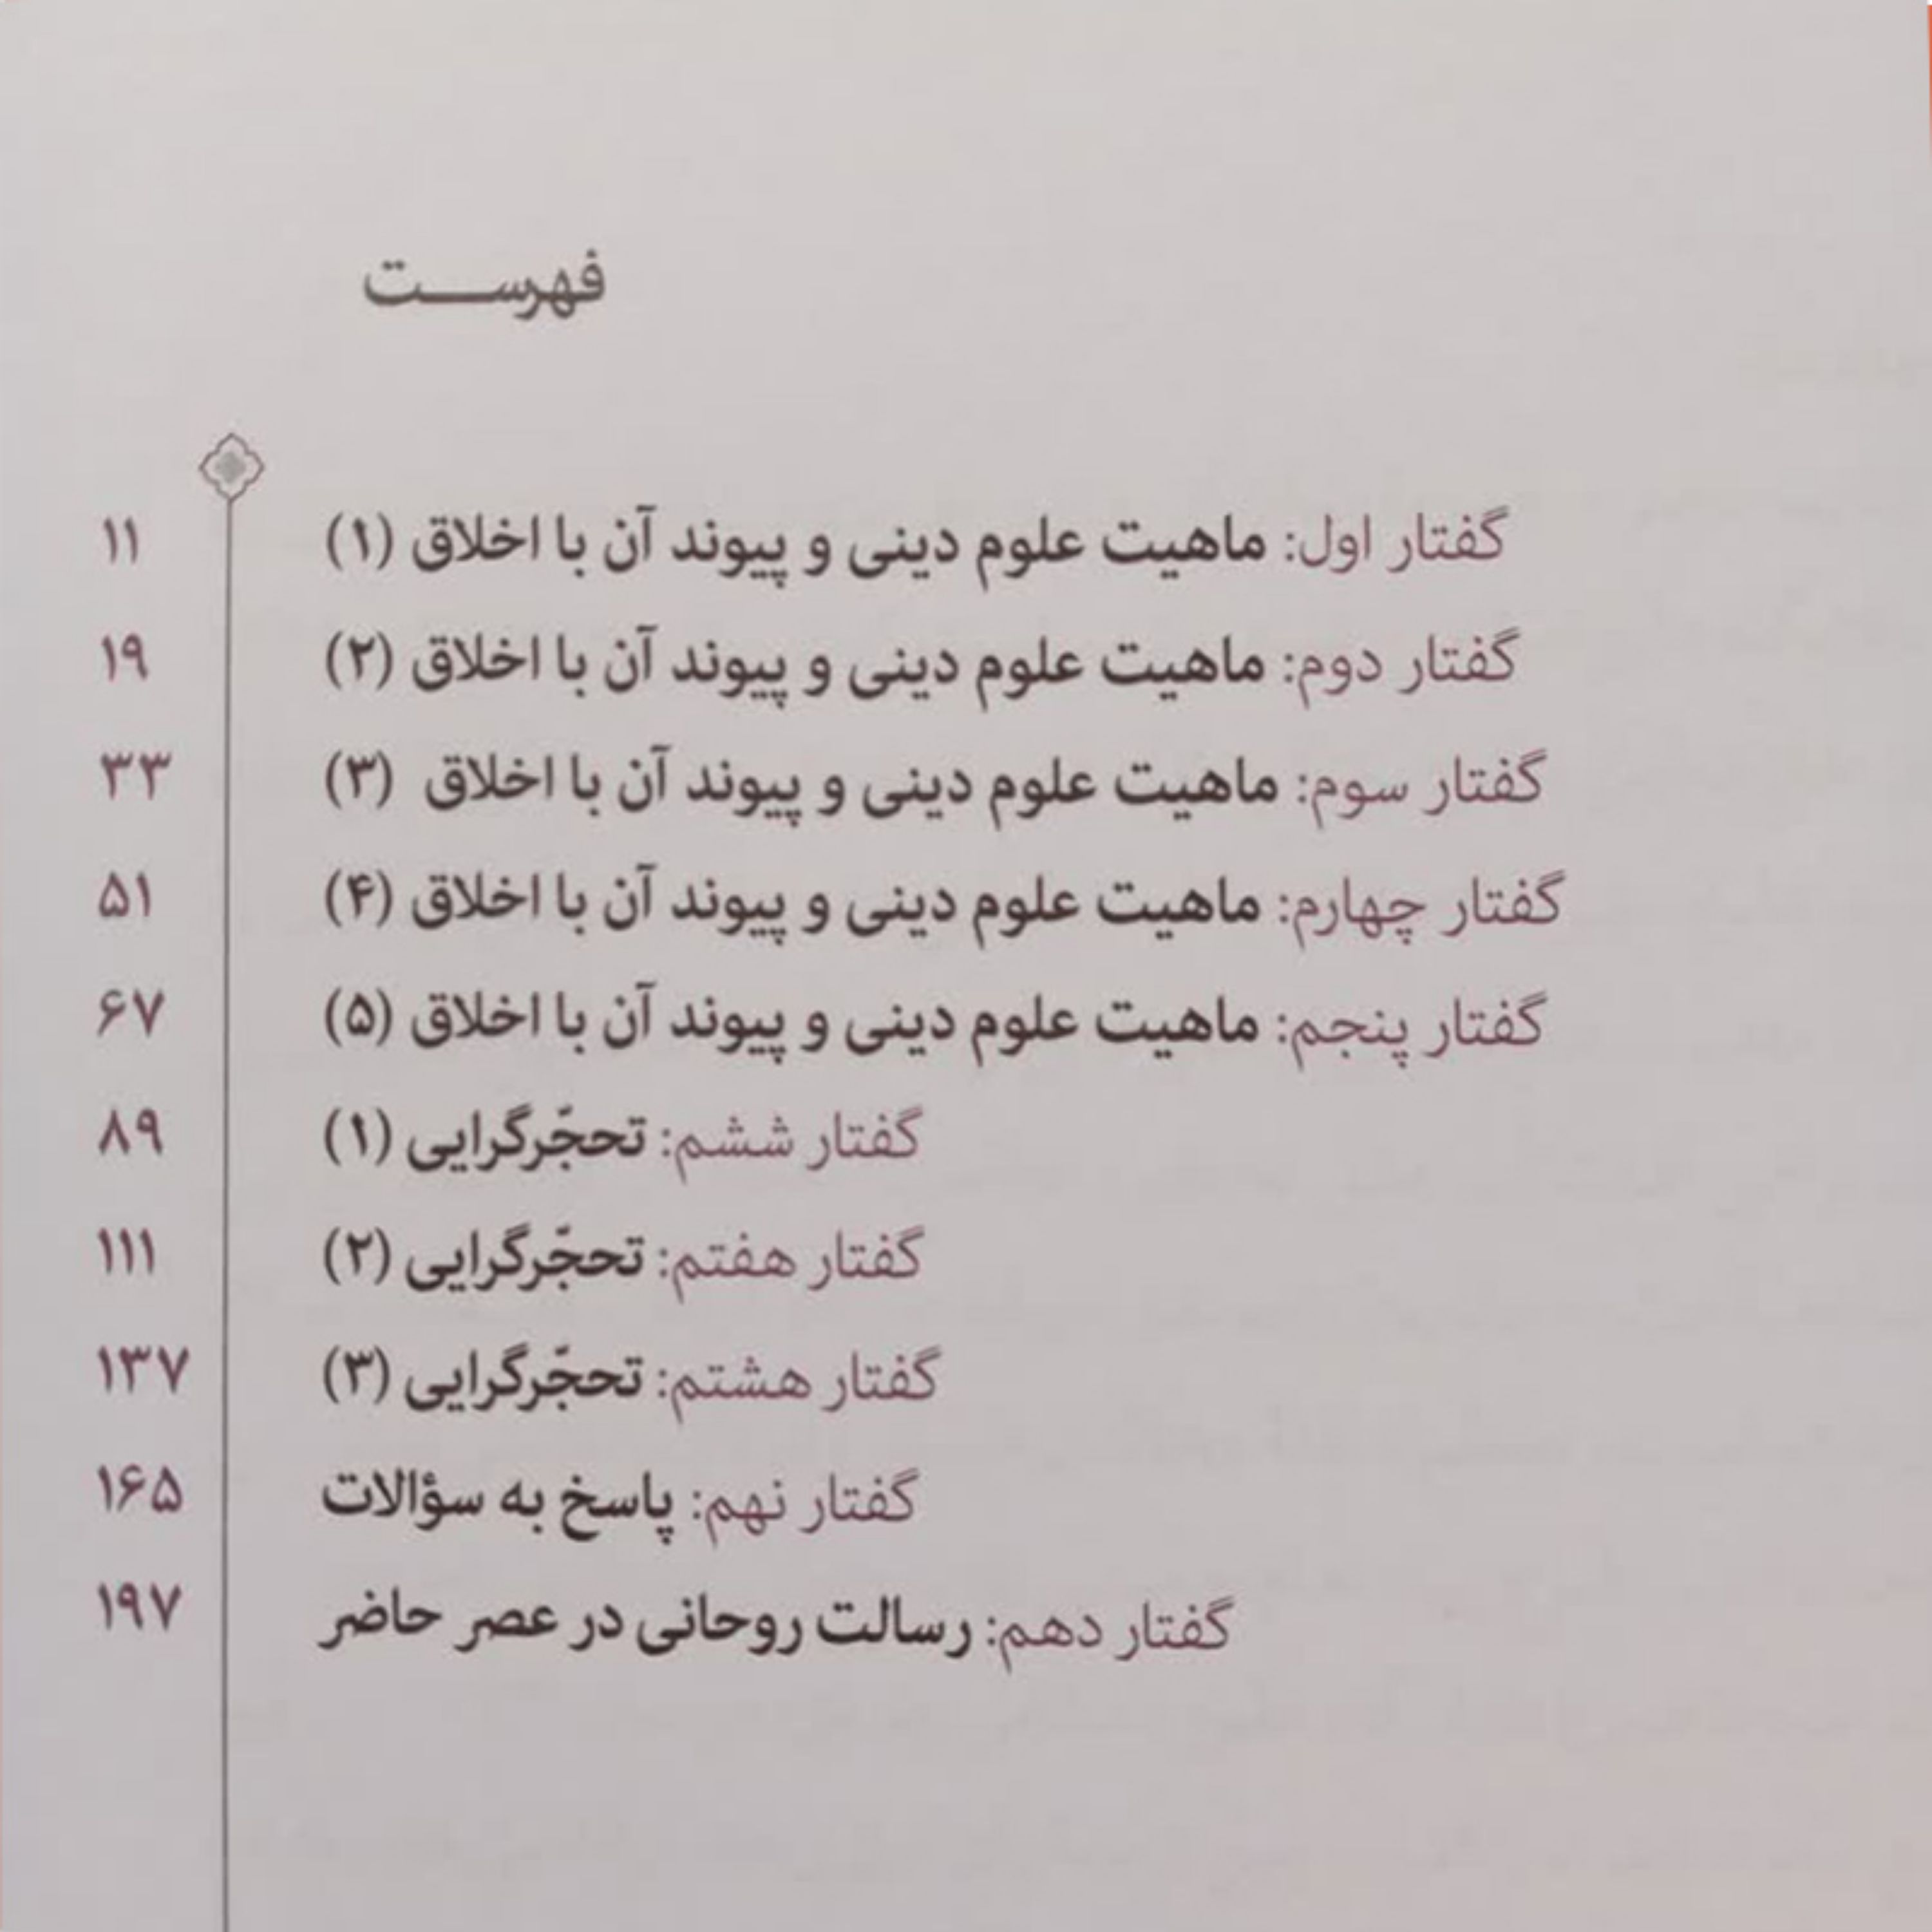 فهرست
گفتار اول: ماهیت علوم دینی و پیوند آن با اخلاق (۱) ۱۱
گفتار دوم: ماهیت علوم دینی و پیوند آن با اخلاق (۲) ۱۹
گفتار سوم: ماهیت علوم دینی و پیوند آن با اخلاق (۳) ۳۳
گفتار چهارم: ماهیت علوم دینی و پیوند آن با اخلاق (۴) ۵۱
گفتار پنجم: ماهیت علوم دینی و پیوند آن با اخلاق (۵) ۶۷
گفتار ششم: تحجّرگرایی (۱) ۸۹
گفتار هفتم: تحجّرگرایی (۲) ۱۱۱
گفتار هشتم: تحجّرگرایی (۳) ۱۳۷
گفتار نهم: پاسخ به سؤالات ۱۶۵
گفتار دهم: رسالت روحانی در عصر حاضر ۱۹۷